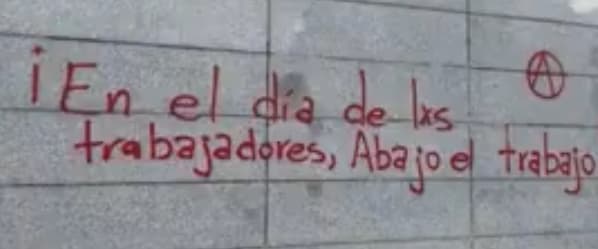 ¡En el día de lxs
trabajadores, Abajo el trabajo